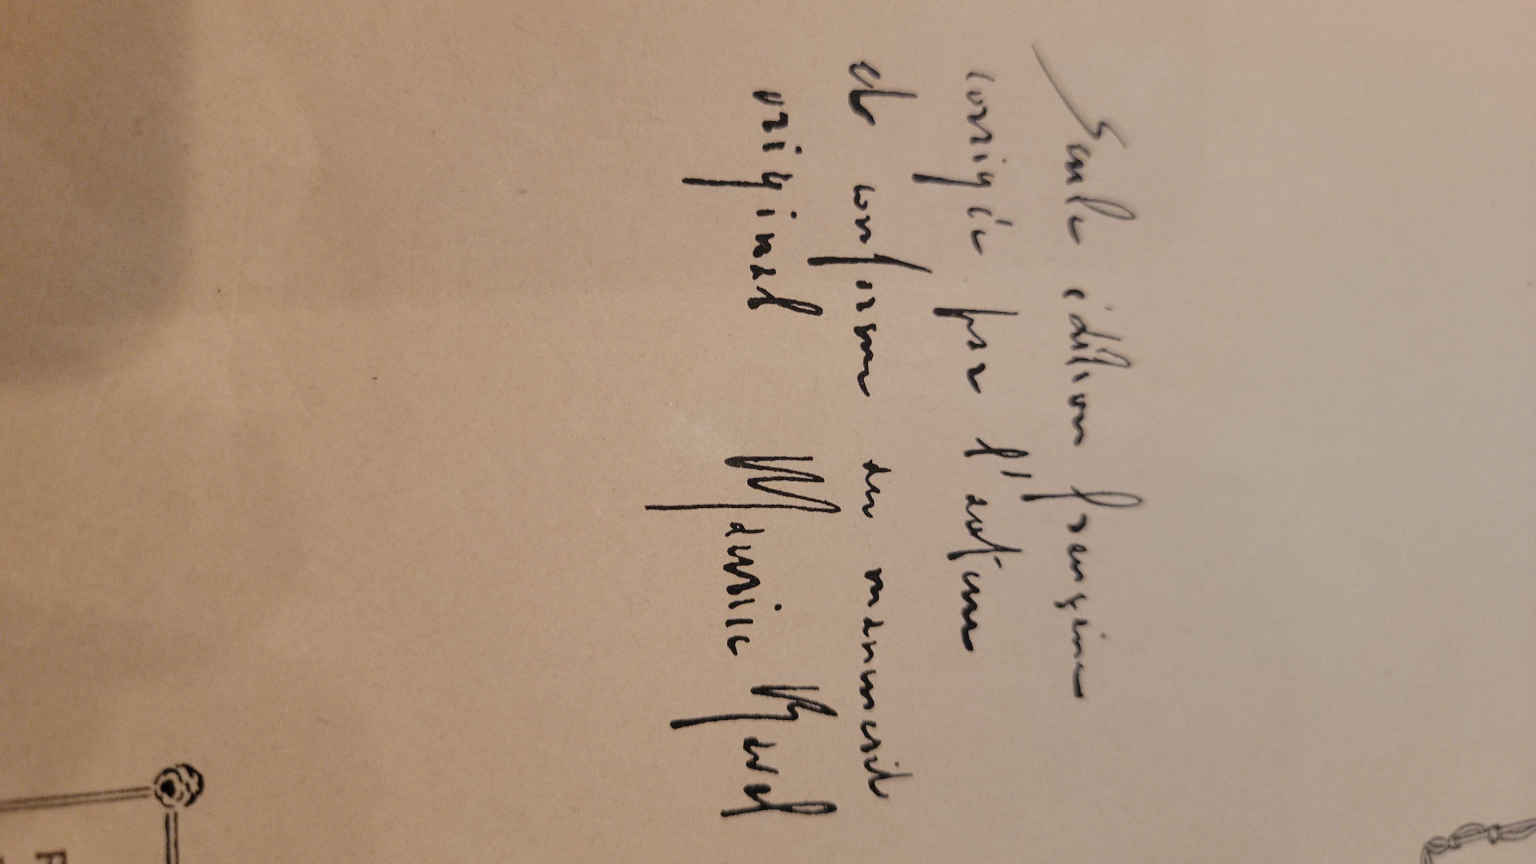 Seule édition française
corrigée par l'auteur
et conforme au manuscrit
original Maurice Ravel